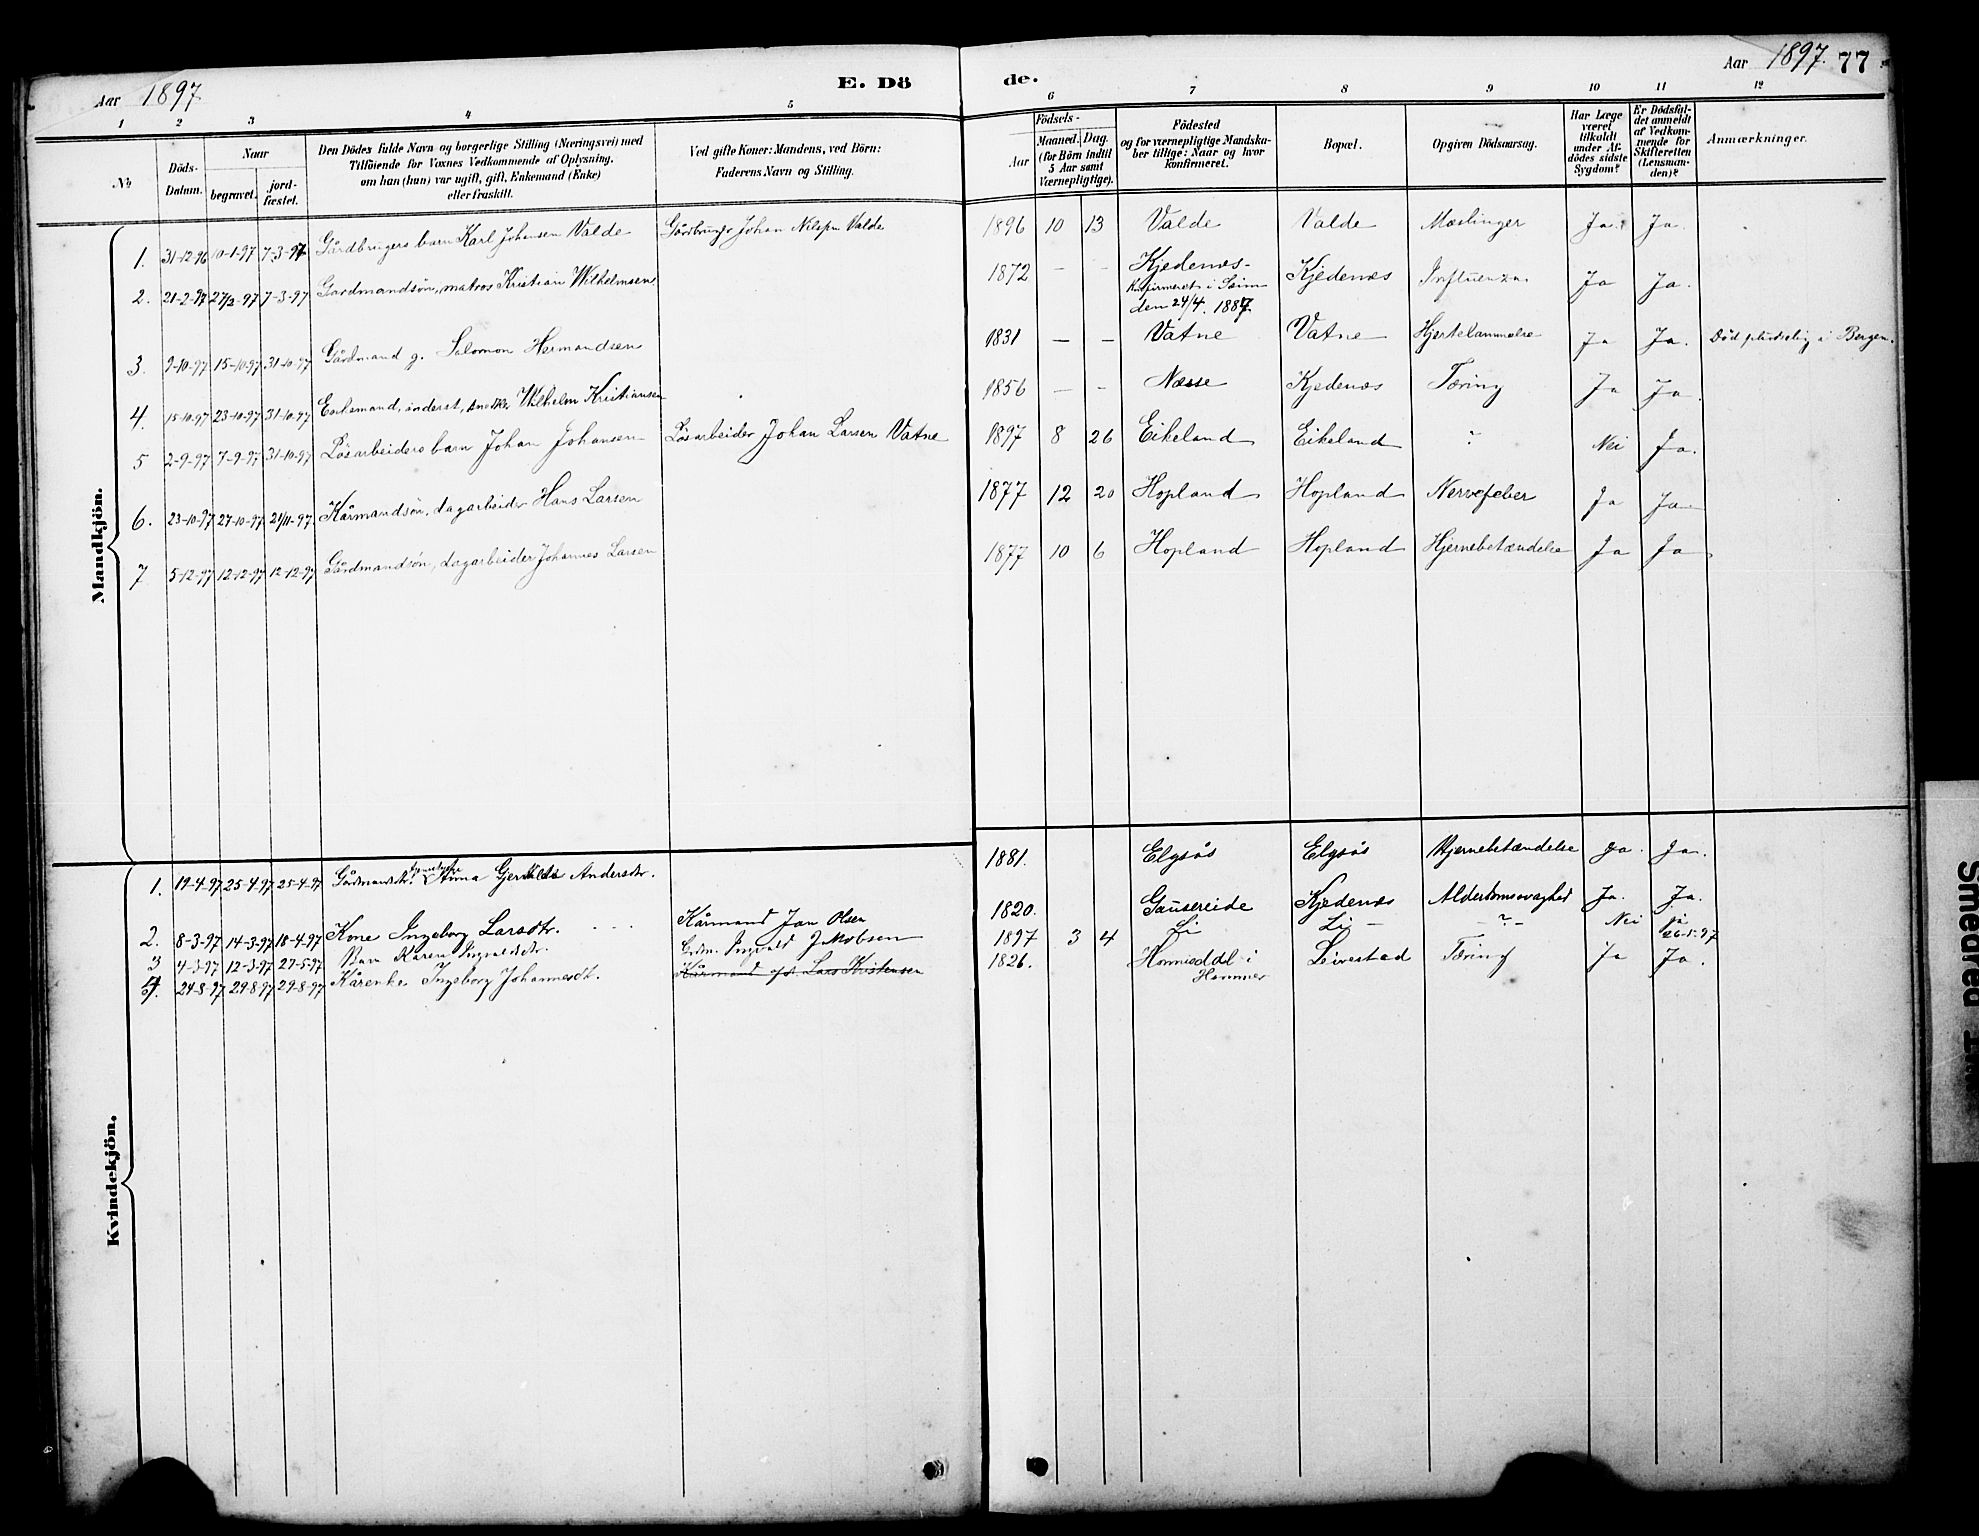 Aar 1897
E. Dö
de.
Aar 1897. 77
1 2 3 4 5 6 7 8 9 10 11 12
No
Döds-Datum.
Naar
begravet.
jord-fæstet.
Den Dödes fulde Navn og borgerlige Stilling (Næringsvei) med
Tilföiende for Voxnes Vedkommende af Oplysning,
om han (hun) var ugift, gift, Enkemand (Enke)
eller fraskilt.
Ved gifte Koner: Mandens, ved Börn:
Faderens Navn og Stilling.
Födsels-
Aar
Maaned. Dag.
(for Börn indtil
5 Aar samt
Værnepligtige).
Födested
og for værnepligtige Mandska-
ber tillige: Naar og hvor
konfirmeret.
Bopæl.
Opgiven Dödsaarsag.
Har Læge
været
tilkaldt
under Af-
dödes sidste
Sygdom?
Er Dödsfal-
det anmeldt
af Vedkom-
mende for
Skifteretten
(Lensman-
den)?
Anmærkninger.
Mandkjön.
1. 31-12-96 10-1-97 7-3-97 Gårdbrugers barn Karl Johansen Valde Gårdbruger Johan Nilsen Valde 1896 10 13 Valde Valde Mæslinger Ja Ja.
2. 21-2-97 27/2-97 7-3-97 Gardmandsön, matros Kristian Wilhelmsen 1872 – – Kjedenæs - Kjedenæs Influenza Ja Ja.
Konfirmeret i Seim
den 24/4. 1887
3. 9-10-97 15-10-97 31-10-97 Gårdmand g. Salomon Hermandsen 1831 – – Vatne Vatne Hjertelammelse Ja Ja. Död pludselig i Bergen.
4. 15-10-97 23-10-97 31-10-97 Enkemand, inderst, Wilhelm Kristiansen 1856 – – Næsse Kjedenæs Tæring Ja Ja.
5 2-9-97 7-9-97 31-10-97 Lösarbeiders barn Johan Johansen Lösarbeider Johan Larsen Vatne 1897 8 26 Eikeland Eikeland ? Nei Ja.
6. 23-10-97 27-10-97 21/11-97 Kårmandsön, dagarbeider Hans Larsen 1877 12 20 Hopland Hopland Nervefeber Ja Ja
7 5-12-97 12-12-97 12-12-97 Gårdmandsön, dagarbeider Johannes Larsen 1877 10 6 Hopland Hopland Hjernebetændelse Ja Ja
Kvindekjön.
1. 19-4-97 25-4-97 25-4-97 Gårdmandsdtr. Anna Andersdtr. 1881. Elgsås Elgsås Hjernebetændelse Ja. Ja.
2. 8-3-97 14-3-97 18-4-97 Kone Ingeborg Larsdtr. Kårmand Jan Olsen 1820. Gausereide Kjedenæs Alderdomssvaghed Ja. Ja.
3 4-3-97 12-3-97 27-5-97 Barn Karen Ingvaldsdtr. Grdm. Ingvald Jakobsen 1897 3 4 Li Li – – ? – Nei 26-5-97
4. 24-8-97 29-8-97 29-8-97 Kårenke Ingeborg Johannesdt. Kårmand Lars Kristensen 1826. i Hammer Leirestad Tæring Ja Ja.
Smeared